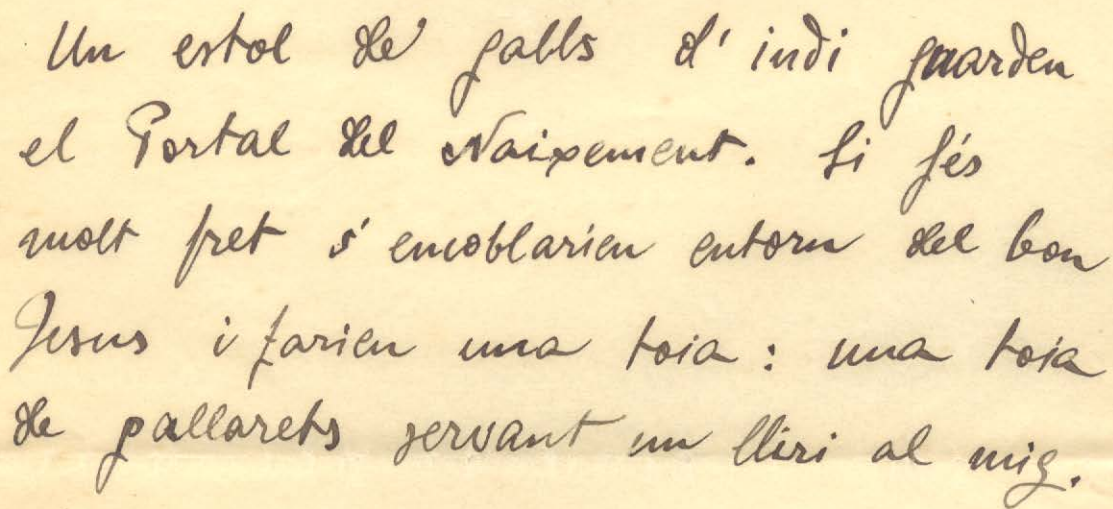 Un estol de galls d'indi guarden
el Portal del Naixement. Si fés
molt fret s'ennoblarien entorn del bon
Jesus i farien una toia: una toia
de gallarets servant un lliri al mig.